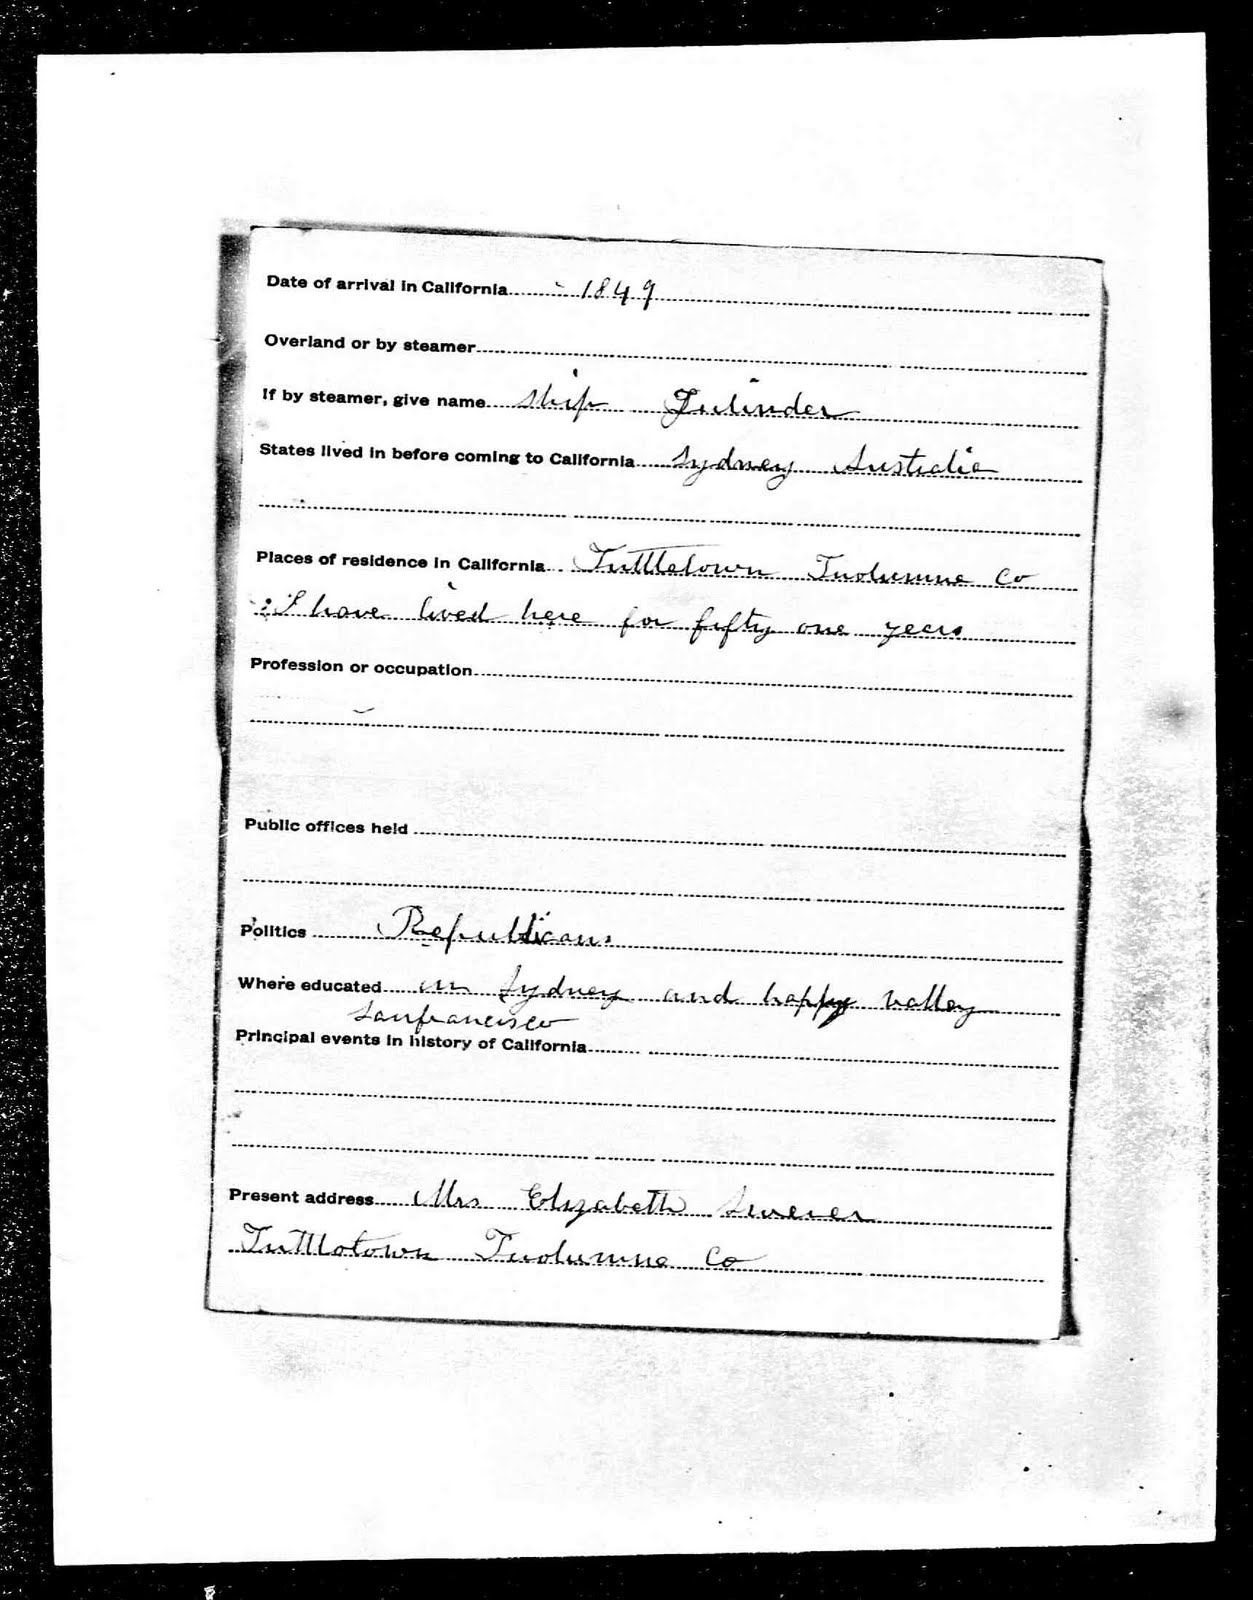 Date of arrival in California 1849
Overland or by steamer
If by steamer, give name ship
States lived in before coming to California Sydney Australia
Places of residence in California Tuttletown Tuolumne Co
I have lived here for fifty one years
Profession or occupation
Public offices held
Politics Republicans
Where educated in Sydney and happy valley
Sanfrancisco
Principal events in history of California
Present address Mrs Elizabeth
Tuttletown Tuolumne Co